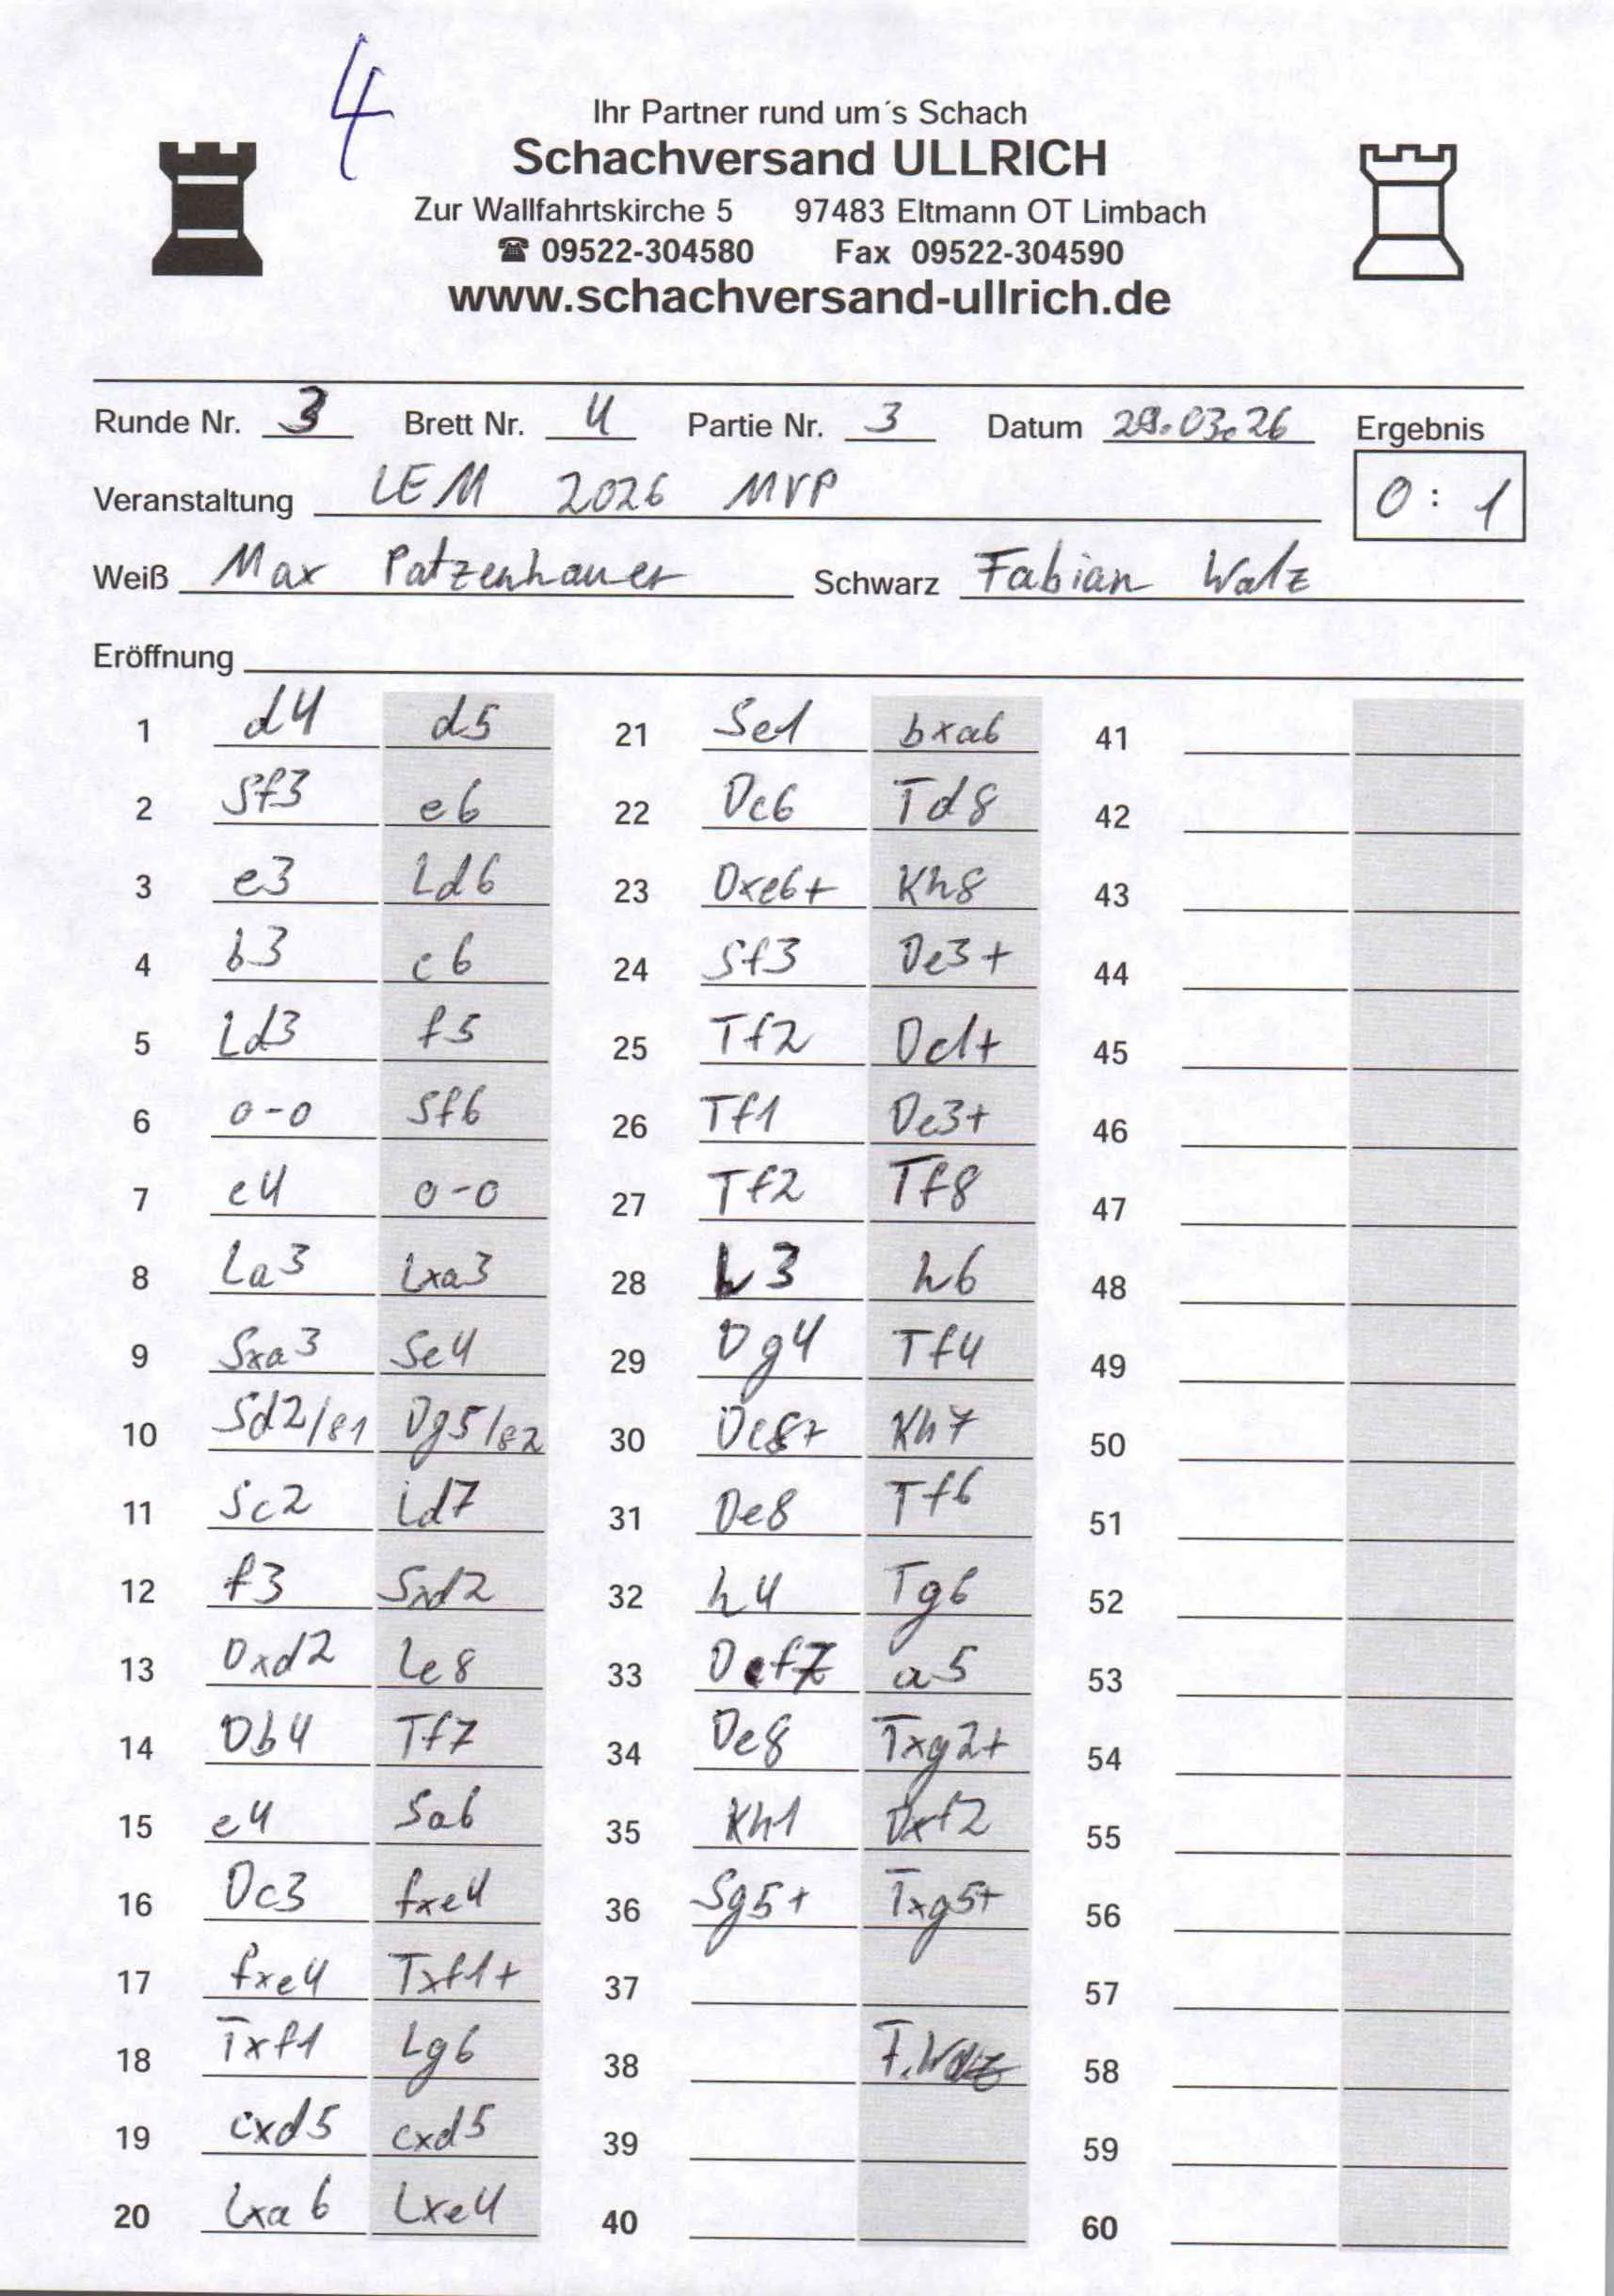 4
Ihr Partner rund um´s Schach
Schachversand ULLRICH
Zur Wallfahrtskirche 5 97483 Eltmann OT Limbach
☎ 09522-304580 Fax 09522-304590
www.schachversand-ullrich.de
Runde Nr. 3 Brett Nr. 4 Partie Nr. 3 Datum 29.03.26 Ergebnis
Veranstaltung LEM 2026 MVP 0 : 1
Weiß Max Patzenhauer Schwarz Fabian Walz
Eröffnung
1 d4 d5 21 Se1 bxa6 41
2 Sf3 e6 22 Dc6 Td8 42
3 e3 Ld6 23 Dxe6+ Kh8 43
4 b3 c6 24 Sf3 De3+ 44
5 Ld3 f5 25 Tf2 Dc1+ 45
6 0-0 Sf6 26 Tf1 De3+ 46
7 c4 0-0 27 Tf2 Tf8 47
8 La3 Lxa3 28 h3 h6 48
9 Sxa3 Se4 29 Dg4 Tf4 49
10 Sd2/81 Dg5/82 30 Dc8+ Kh7 50
11 Sc2 Ld7 31 De8 Tf6 51
12 f3 Sxd2 32 h4 Tg6 52
13 Dxd2 Le8 33 Df7 a5 53
14 Db4 Tf7 34 De8 Txg2+ 54
15 e4 Sa6 35 Kh1 Dxf2 55
16 Dc3 fxe4 36 Sg5+ Txg5+ 56
17 fxe4 Txf1+ 37 57
18 Txf1 Lg6 38 F. Walz 58
19 cxd5 cxd5 39 59
20 Lxa6 Lxe4 40 60